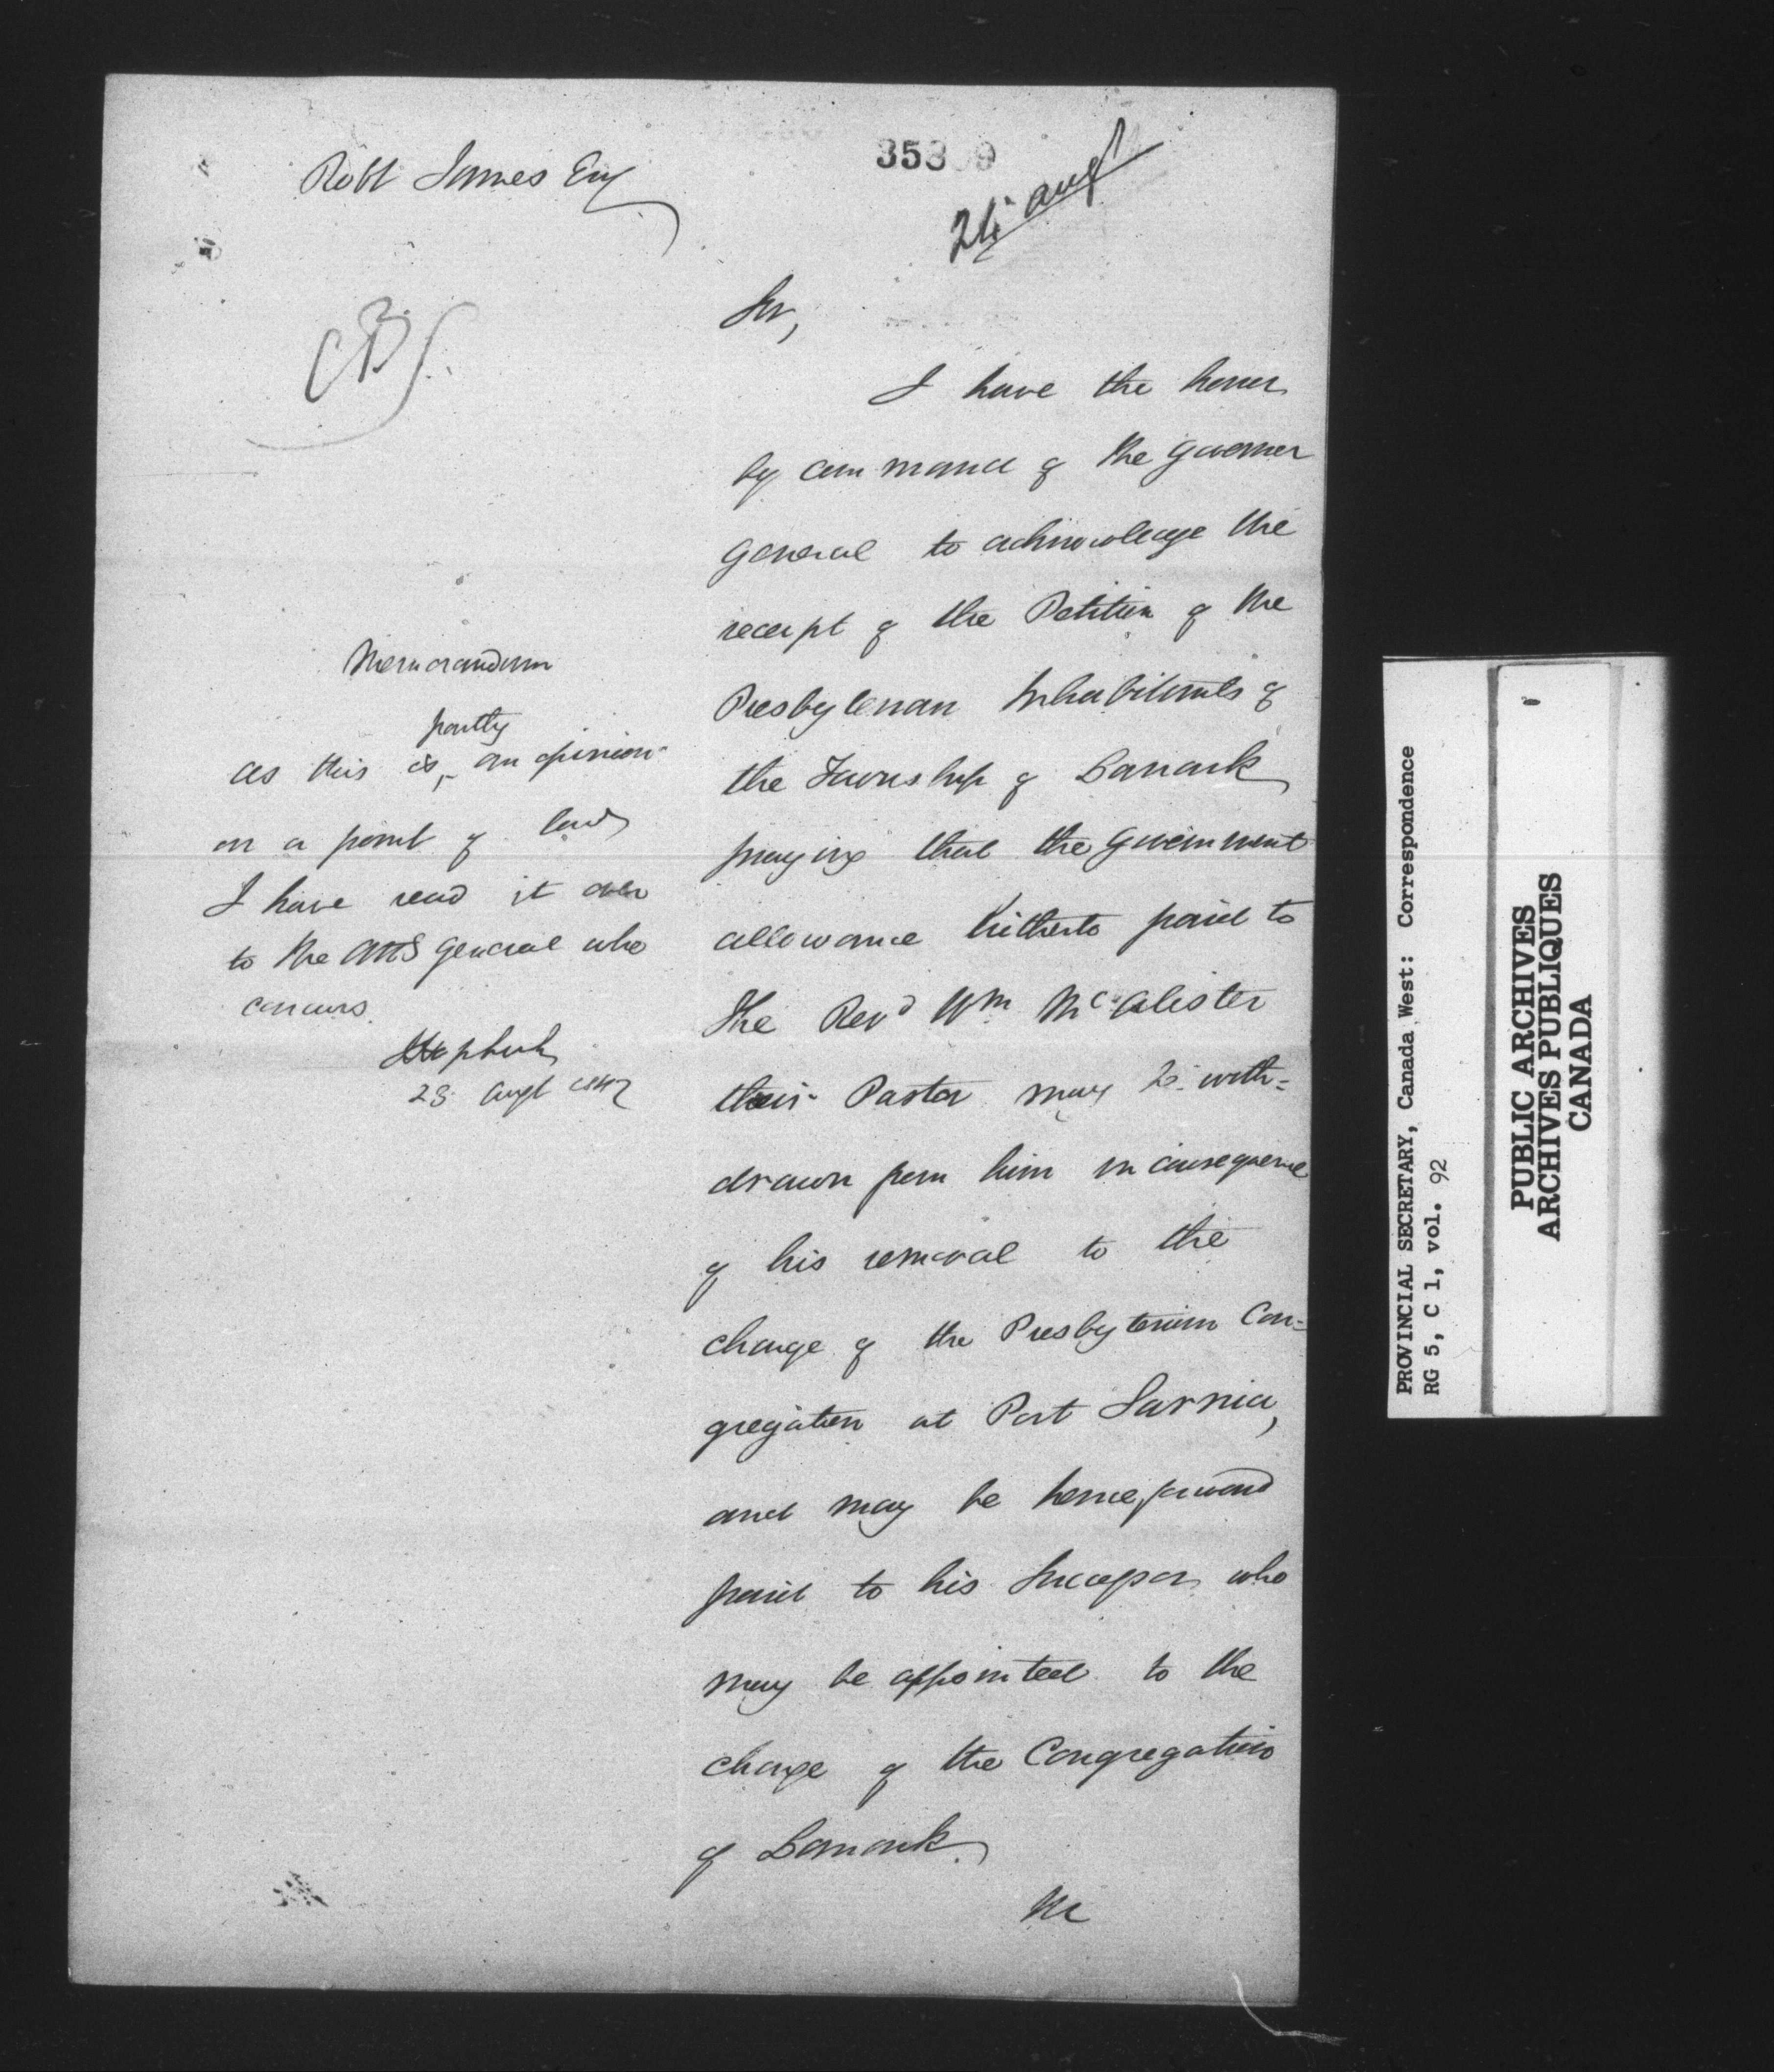 Robt James Esq
353 9
24 Augt
Sir,
I have the honor
by command of the Governor
General to acknowledge the
receipt of the Petition of the
Presbyterian Inhabitants of
the Township of Lanark
praying that the Government
allowance hitherto paid to
the Revd Wm McAlister
their Pastor may be with=
drawn from him in consequence
of his removal to the
charge of the Presbyterian Con=
gregation at Port Sarnia,
and may be henceforward
paid to his Successor who
may be appointed to the
charge of the Congregation
of Lanark.
Memorandum
partly
as this is ‸ an opinion
on a point of law
I have read it over
to the Att Genl General who
concurs.
28 Augt 1842
PROVINCIAL SECRETARY, Canada West: Correspondence
RG 5, C 1, vol. 92
PUBLIC ARCHIVES
ARCHIVES PUBLIQUES
CANADA